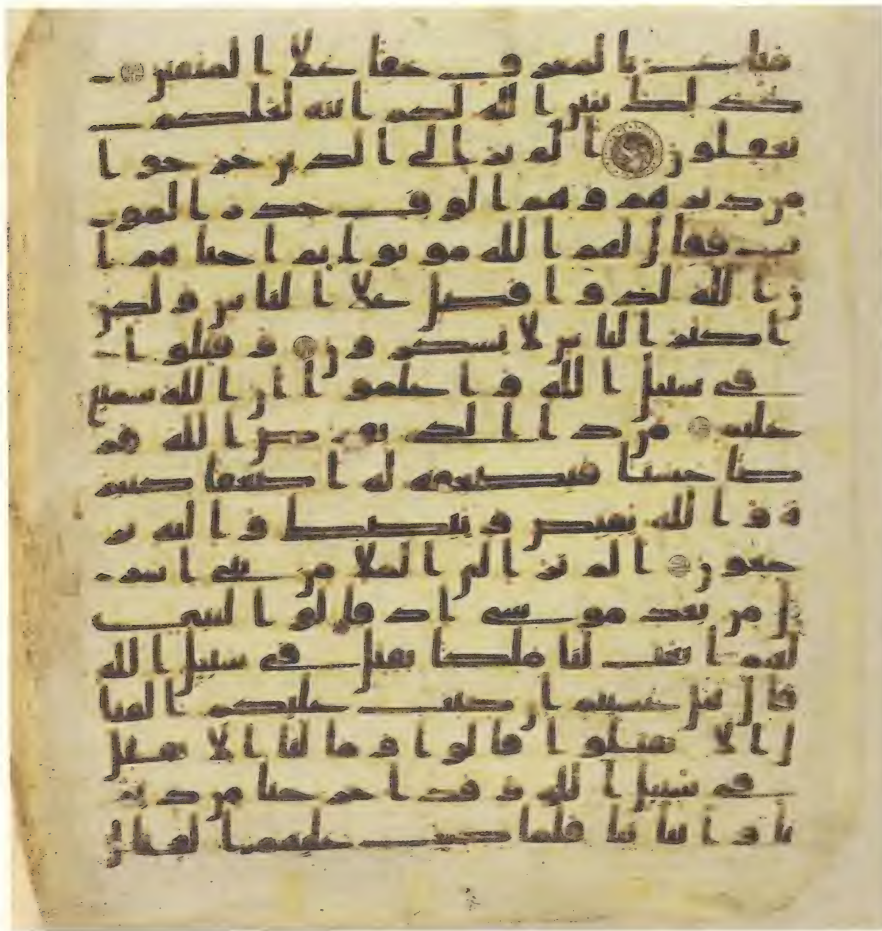 متاع بالمعروف حقا علا المتقين
كذلك يبين الله لكم ايته لعلكم
تعقلون الم تر الى الذين خرجوا
من ديرهم وهم الوف حذر المو
ت فقال لهم الله موتوا ثم احياهم ا
ن الله لذوا فضل علا الناس ولكن
اكثر الناس لا يشكرون وقتلوا
في سبيل الله واعلموا ان الله سميع
عليم من ذا الذي يقرض الله قر
ضا حسنا فيضعفه له اضعافا كثير
ة والله يقبض ويبصط واليه تر
جعون الم تر الى الملا من بني اسر
يل من بعد موسى اذ قلوا لنبي
لهم ابعث لنا ملكا نقتل في سبيل الله
قال هل عسيتم ان كتب عليكم القتا
ل الا تقتلوا قالوا وما لنا الا نقتل
في سبيل الله وقد اخرجنا من دير
نا وابنائنا فلما كتب عليهم القتال